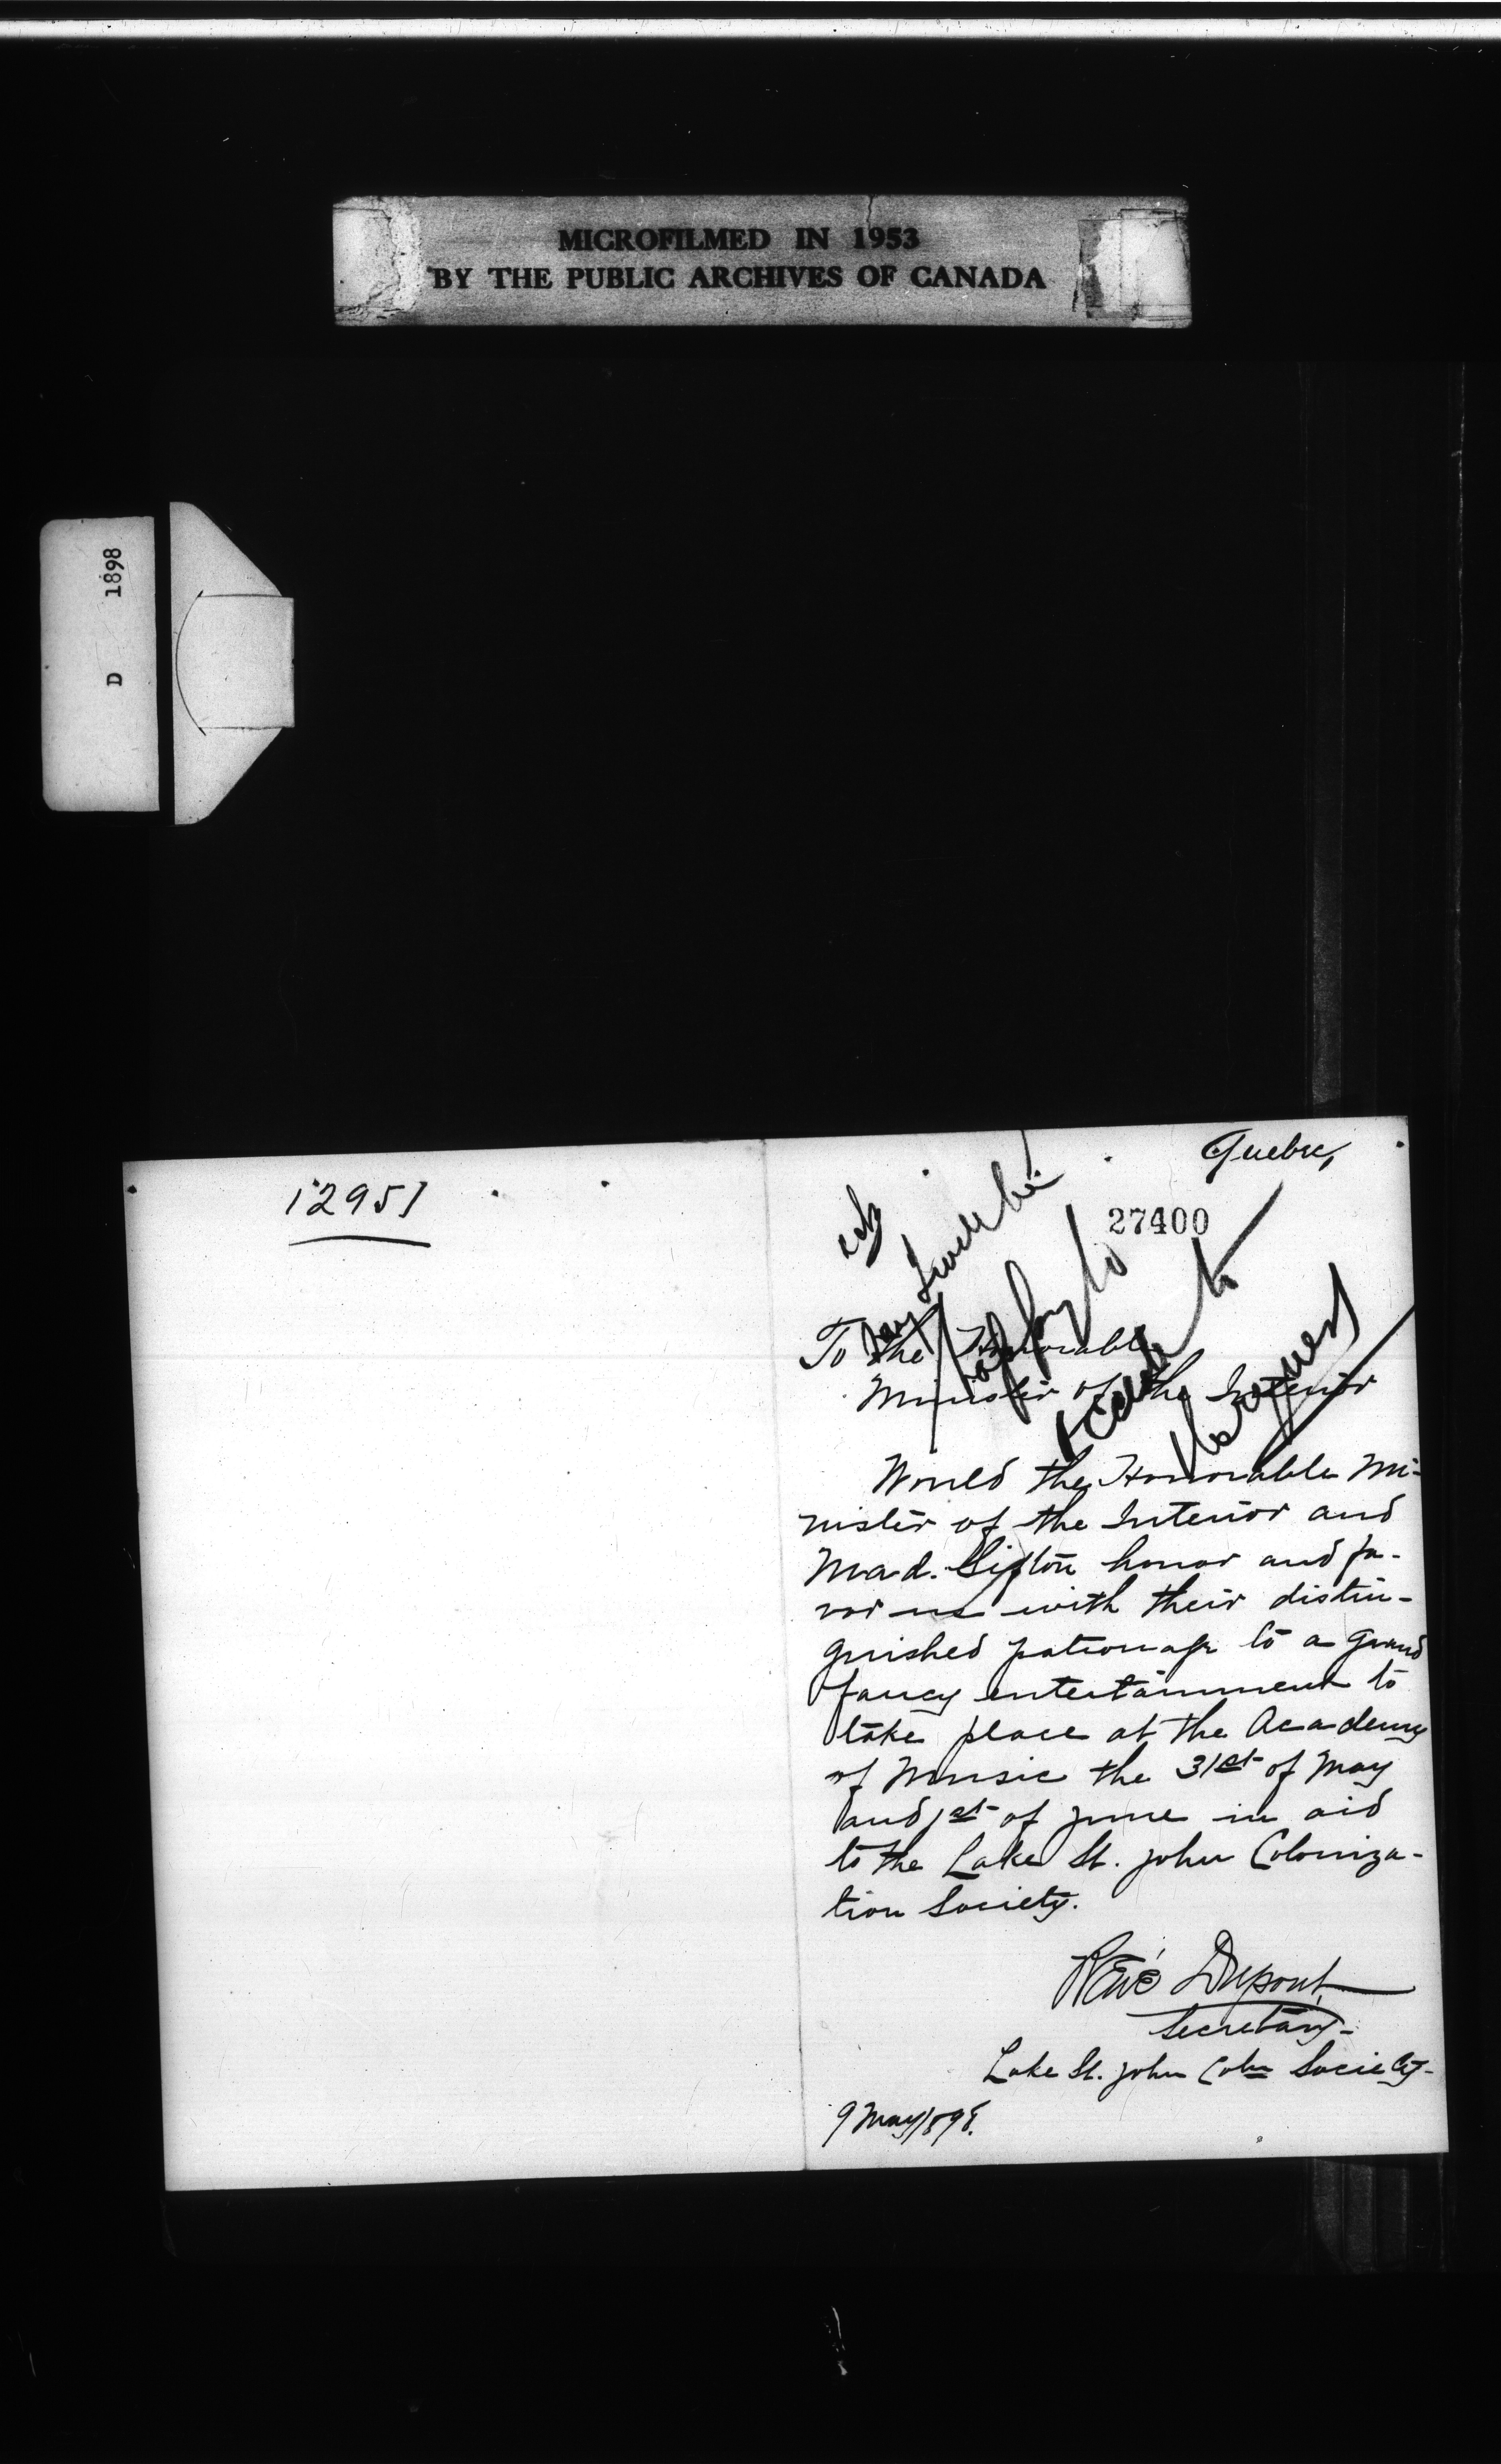 MICROFILMED IN 1953
BY THE PUBLIC ARCHIVES OF CANADA
D 1898
12951
Quebec,
27400
ack
Say I will be
happy to
accede to
the request
To the Honorable
Minister of the Interior
Would the Honorable Mi-
nister of the Interior and
Mad. Sifton honor and fa-
vor us with their distin-
guished patronage to a grand
fancy entertainment to
take place at the Academy
of Music the 31st of May
and 1st of June in aid
to the Lake St. John Coloniza-
tion Society.
René Dupont
Secretary-
Lake St. John Coln Society-
9 May 1898.